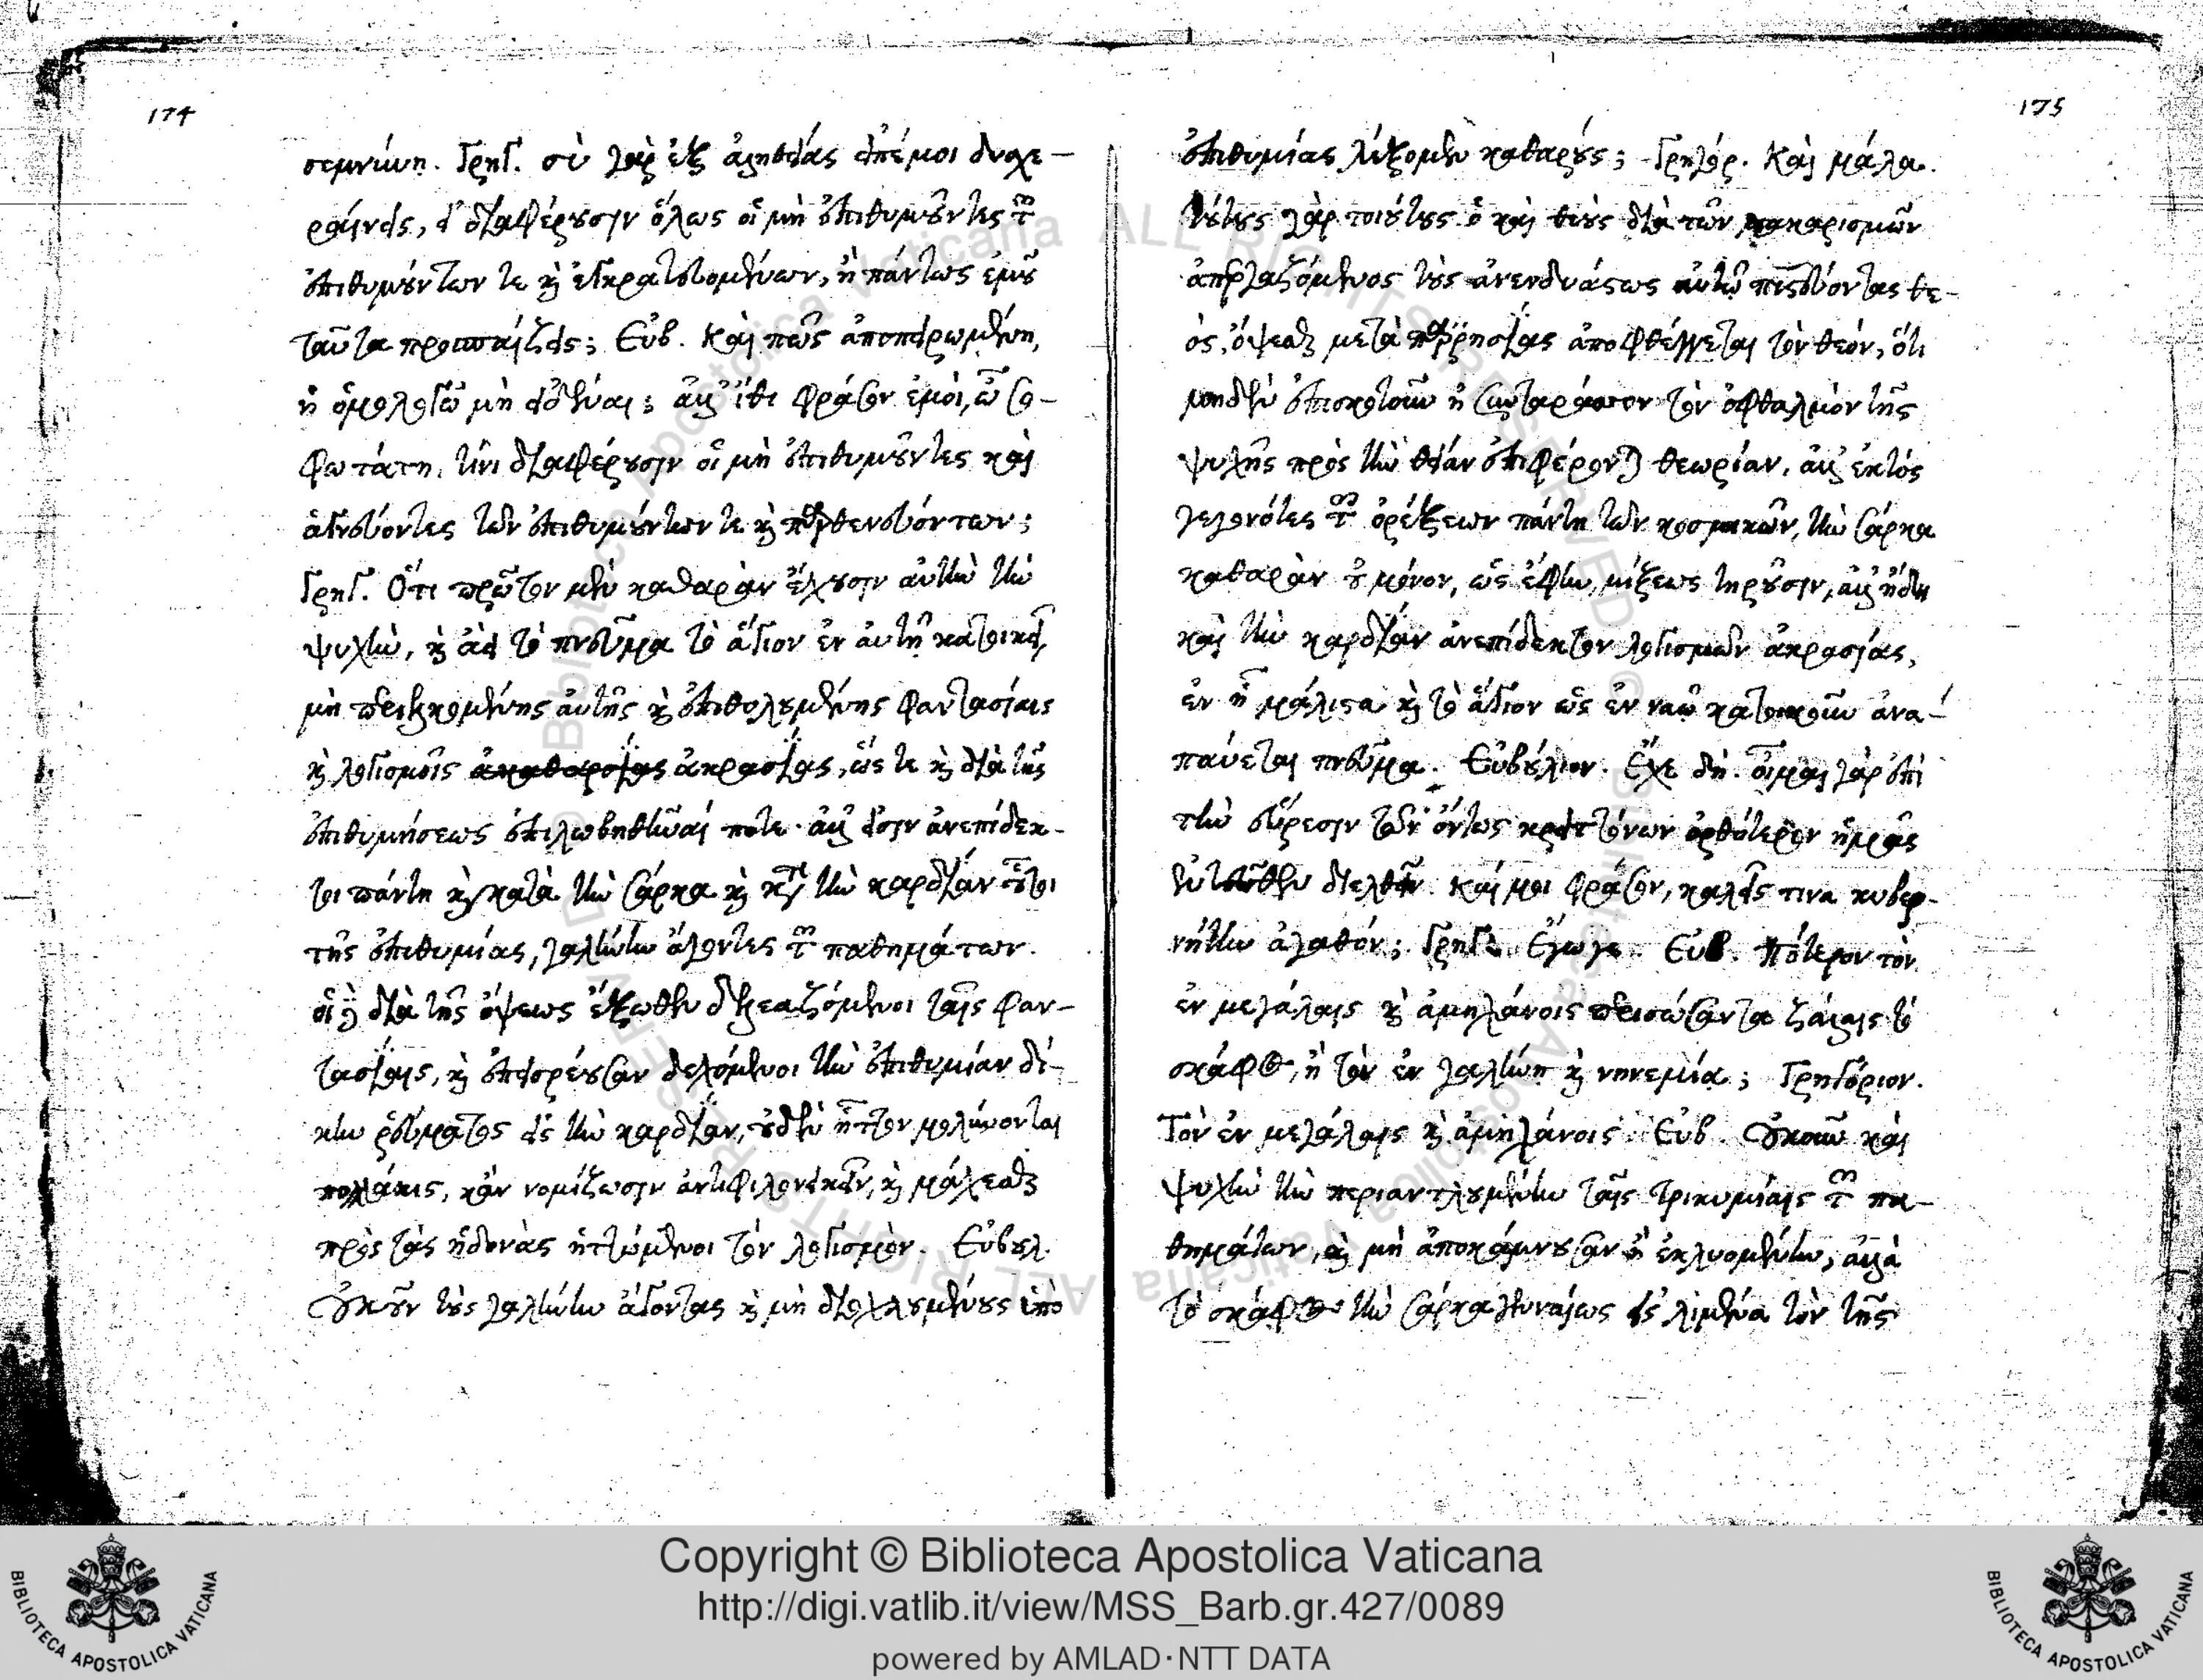 174
σεμνύνῃ. Γρηγ. σὺ γὰρ ἐξ ἀληθείας εἰπέ μοι δυσχε-
ραίνεις, εἰ διαφέρουσιν ὅλως οἱ μὴ ἐπιθυμοῦντες τῶν
ἐπιθυμούντων τε καὶ ἐγκρατευομένων, ἢ πάντως ἐμοῦ
ταῦτα προσπαίζεις; Εὐβ. Καὶ πῶς ἀποπειρωμένη,
ἢ ὁμολογῶ μὴ εἰδέναι; ἀλλ' ἴθι φράσον ἐμοὶ, ὦ σο-
φωτάτη, τίνι διαφέρουσιν οἱ μὴ ἐπιθυμοῦντες καὶ
ἁγνεύοντες τῶν ἐπιθυμούντων τε καὶ παρθενευόντων;
Γρηγ. Ὅτι πρῶτον μὲν καθαρὰν ἔχουσιν αὐτὴν τὴν
ψυχὴν, καὶ ἀεὶ τὸ πνεῦμα τὸ ἅγιον ἐν αὐτῇ κατοικεῖ,
μὴ περιελκομένης αὐτῆς καὶ ἐπιθολουμένης φαντασίαις
καὶ λογισμοῖς ἀκαθαρσίας ἀκρασίας, ὥς τε καὶ διὰ τῆς
ἐπιθυμήσεως ἐπιλωβηθῆναί ποτε. ἀλλ' εἰσιν ἀνεπίδεκ-
τοι πάντη καὶ κατὰ τὴν σάρκα καὶ κατὰ τὴν καρδίαν οὗτοι
τῆς ἐπιθυμίας, γαλήνην ἄγοντες τῶν παθημάτων.
οἱ δὲ διὰ τῆς ὄψεως ἔξωθεν δελεαζόμενοι ταῖς φαν-
τασίαις, καὶ ἐπεισρέουσαν δεχόμενοι τὴν ἐπιθυμίαν δί-
κην ῥεύματος εἰς τὴν καρδίαν, οὐδὲν ἧττον μολύνονται
πολλάκις, κἂν νομίζωσιν ἀντιφιλονεικεῖν, καὶ μάχεσθαι
πρὸς τὰς ἡδονὰς ἡττώμενοι τὸν λογισμόν. Εὐβουλ.
Οὐκοῦν τοὺς γαλήνην ἄγοντας καὶ μὴ διοχλουμένους ὑπὸ
175
ἐπιθυμίας λέξομεν καθαρούς; Γρηγόρ. Καὶ μάλα.
τούτους γὰρ τοιούτους ὁ καὶ θεοὺς διὰ τῶν μακαρισμῶν
ἀπεργαζόμενος τοὺς ἀνενδυάστως αὐτῷ πιστεύοντας θε-
ὸς, ὄψεσθαι μετὰ παρρησίας ἀποφθέγγεται τὸν θεόν, ὅτι
μηδὲν ἐπισκοτοῦν ἢ συνταράσσον τὸν ὀφθαλμὸν τῆς
ψυχῆς πρὸς τὴν θείαν ἐπιφέρονται θεωρίαν. ἀλλ' ἐκτὸς
γεγονότες τῶν ὀρέξεων πάντη τῶν κοσμικῶν, τὴν σάρκα
καθαρὰν οὐ μόνον, ὡς ἔφην, μίξεως τηροῦσιν, ἀλλ' ἤδη
καὶ τὴν καρδίαν ἀνεπίδεκτον λογισμῶν ἀκρασίας,
ἐν ᾗ μάλιστα καὶ τὸ ἅγιον ὡς ἐν ναῷ κατοικοῦν ἀνα-
παύεται πνεῦμα. Εὐβούλιον. Ἔχε δή. οἶμαι γὰρ ἐπὶ
τὴν εὕρεσιν τῶν ὄντως κρειττόνων ὀρθότερον ἡμᾶς
ἐντεῦθεν διελθεῖν. Καί μοι φράσον, καλεῖς τινα κυβερ-
νήτην ἀγαθόν; Γρηγ. Ἔγωγε. Εὐβ. Πότερον τὸν
ἐν μεγάλαις καὶ ἀμηχάνοις περισώσαντα ζάλαις τὸ
σκάφος, ἢ τὸν ἐν γαλήνῃ καὶ νηνεμίᾳ; Γρηγόριον.
Τὸν ἐν μεγάλαις καὶ ἀμηχάνοις. Εὐβ. Οὐκοῦν καὶ
ψυχὴν τὴν περιαντλουμένην ταῖς τρικυμίαις τῶν πα-
θημάτων, καὶ μὴ ἀποκάμνουσαν ἢ ἐκλυομένην, ἀλλὰ
τὸ σκάφος τὴν σάρκα γενναίως εἰς λιμένα τὸν τῆς
Copyright © Biblioteca Apostolica Vaticana
http://digi.vatlib.it/view/MSS_Barb.gr.427/0089
powered by AMLAD·NTT DATA
BIBLIOTECA APOSTOLICA VATICANA
BIBLIOTECA APOSTOLICA VATICANA